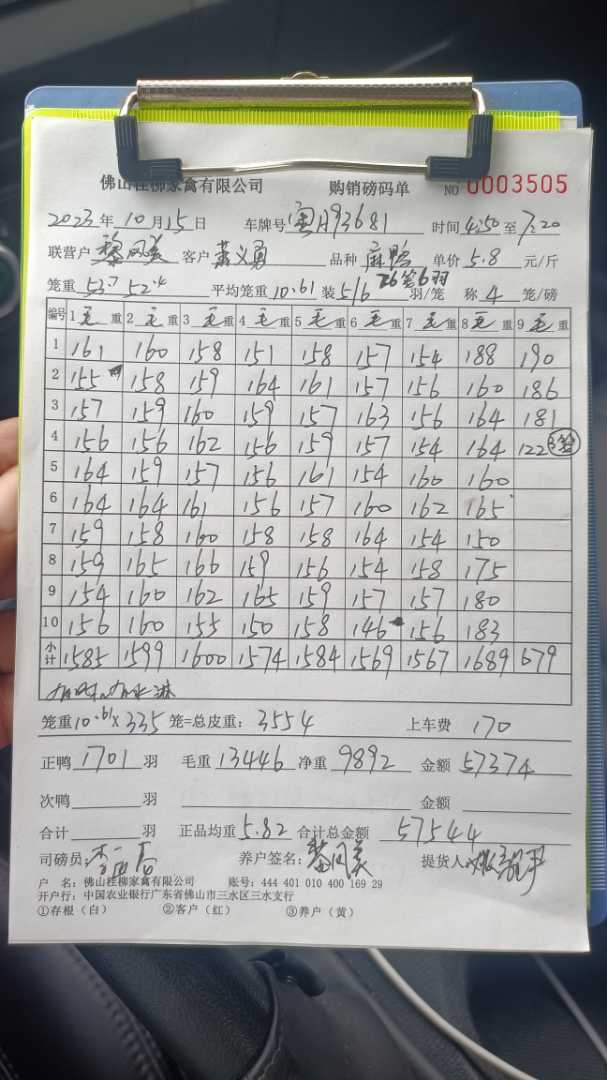 佛山桂柳家禽有限公司 购销磅码单 NO 0003505
2023年10月15日 车牌号 粤A93681 时间 4:50 至 7:20
联营户 黎凤美 客户 义勇 品种 麻鸭 单价 5.8 元/斤
26笼6羽
笼重 53.7 52.4 平均笼重 10.61 装 5/6 羽/笼 称 4 笼/磅
编号 1 毛 重 2 毛 重 3 毛 重 4 毛 重 5 毛 重 6 毛 重 7 毛 重 8 毛 重 9 毛 重
1 161 160 158 151 158 157 154 188 190
2 155 158 159 164 161 157 156 160 186
3 157 159 160 159 157 163 156 164 181
4 156 156 162 156 159 157 154 164 122 3笼
5 164 159 157 156 161 154 160 160
6 164 164 161 156 157 160 162 165
7 159 158 160 158 158 164 154 150
8 159 165 166 159 156 154 158 175
9 154 160 162 165 159 157 157 180
10 156 160 155 150 158 146 156 183
小计 1585 1599 1600 1574 1584 1569 1567 1689 679
笼重 10.61 x 335 笼=总皮重: 3554 上车费 170
正鸭 1701 羽 毛重 13446 净重 9892 金额 57374
次鸭 羽 金额
合计 羽 正品均重 5.82 合计总金额 57544
司磅员: 养户签名: 黎凤美 提货人:
户 名: 佛山桂柳家禽有限公司 账号: 444 401 010 400 169 29
开户行: 中国农业银行广东省佛山市三水区三水支行
①存根（白） ②客户（红） ③养户（黄）